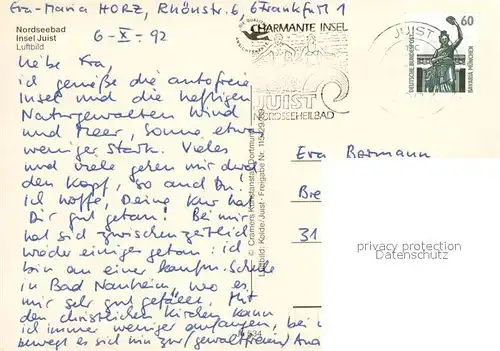 Eva-Maria HORZ, Rhönstr. 6, 6 Frankfurt 1
Nordseebad
Insel Juist
Luftbild
6-X-92
Liebe Eva,
ich genieße die autofreie
Insel und die heftigen
Naturgewalten Wind
und Meer, Sonne etwas
weniger stark. Vieles
und viele gehen mir durch
den Kopf, so auch Du.
Ich hoffe, Deine Kur hat
Dir gut getan! Bei mir
hat sich zwischenzeitlich
wieder einiges getan: ich
bin an einer kaufm. Schule
in Bad Nauheim, wo es
mir sehr gut gefällt. Mit
den christlichen Kirchen kann
ich immer weniger anfangen, bei
bewegt es sich hin zur (gewaltfreien) Ana
© Cramers Kunstanstalt, Dortmund
Luftbild: Kolde, Juist - Freigabe Nr.
CHARMANTE INSEL
JUIST
NORDSEEHEILBAD
JUIST
60
DEUTSCHE BUNDESPOST
BAVARIA MÜNCHEN
Eva Bormann
Bre
31
privacy protection
Datenschutz